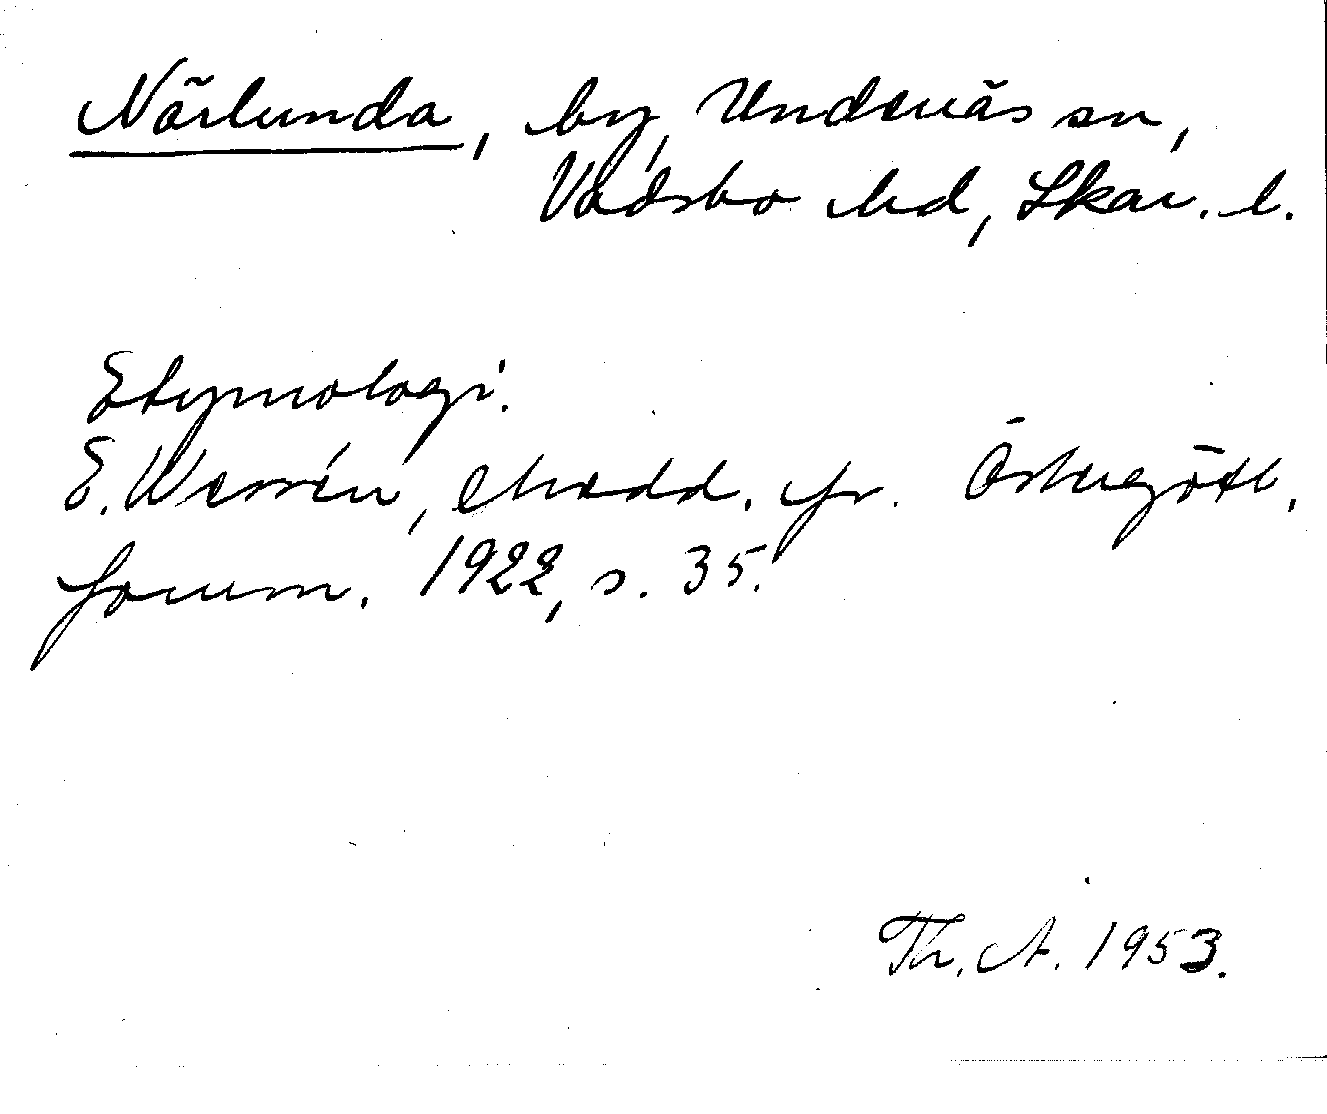 Närlunda, by, Undenäs sn,
Vadsbo hd, Skar. l.
Etymologi.
E. Wessén, Medd. fr. Östergötl.
fornm. 1922, s. 35.
Th. A. 1953.